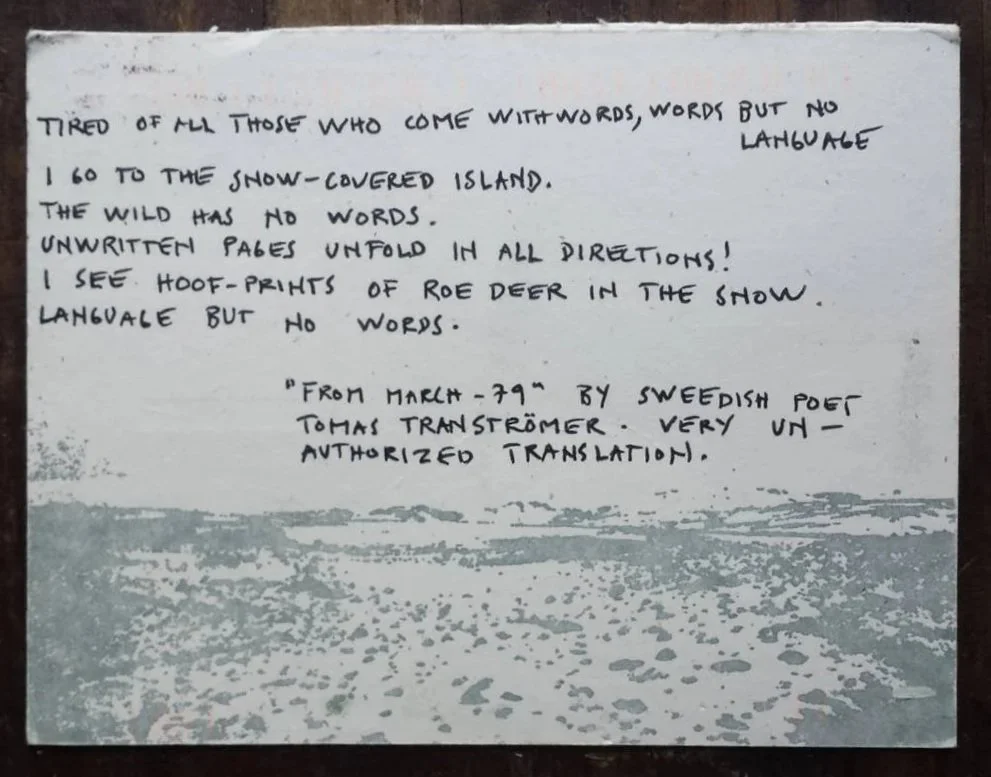 TIRED OF ALL THOSE WHO COME WITH WORDS, WORDS BUT NO
LANGUAGE
I GO TO THE SNOW-COVERED ISLAND.
THE WILD HAS NO WORDS.
UNWRITTEN PAGES UNFOLD IN ALL DIRECTIONS!
I SEE HOOF-PRINTS OF ROE DEER IN THE SNOW.
LANGUAGE BUT NO WORDS.
"FROM MARCH -79" BY SWEEDISH POET
TOMAS TRANSTRÖMER. VERY UN-
AUTHORIZED TRANSLATION.